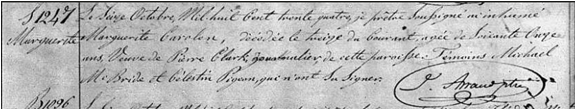 S 1247
Marguerite
Le Seize Octobre, Mil huit Cent trente quatre, je prêtre Soussigné ai inhumé
Marguerite Carolon, décédée le treize du Courant, agée de Soixante Onze
ans, Veuve de Pierre Clark, journalier de cette paroisse. Témoins Michael
Mc Bride et Célestin Pigeon, qui n'ont Su Signer.